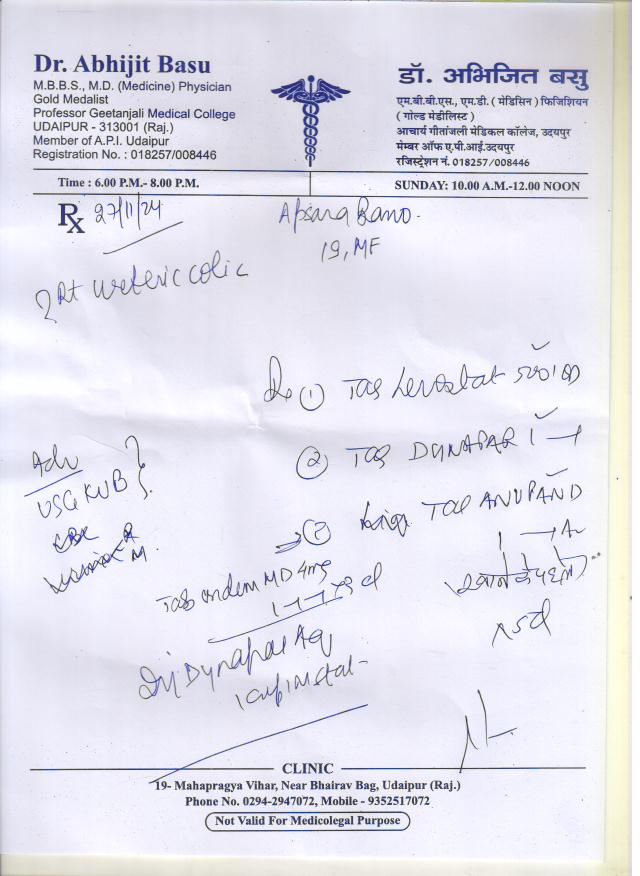 Dr. Abhijit Basu
M.B.B.S., M.D. (Medicine) Physician
Gold Medalist
Professor Geetanjali Medical College
UDAIPUR - 313001 (Raj.)
Member of A.P.I. Udaipur
Registration No. : 018257/008446
डॉ. अभिजित बसु
एम.बी.बी.एस., एम.डी. ( मेडिसिन ) फिजिशियन
( गोल्ड मेडीलिस्ट )
आचार्य गीतांजली मेडिकल कॉलेज, उदयपुर
मेम्बर ऑफ ए.पी.आई.उदयपुर
रजिस्ट्रेशन नं. 018257/008446
Time : 6.00 P.M.- 8.00 P.M.
SUNDAY: 10.00 A.M.-12.00 NOON
Rx 27/11/24
Apsara Bano.
19, MF
? Rt ureteric colic
① TAB
② TAB DYNAPAR
Adv
USG KUB
TAB ANUPAND
TAB ondem MD 4mg
Inj Dynapar Aq
CLINIC
19- Mahapragya Vihar, Near Bhairav Bag, Udaipur (Raj.)
Phone No. 0294-2947072, Mobile - 9352517072
Not Valid For Medicolegal Purpose